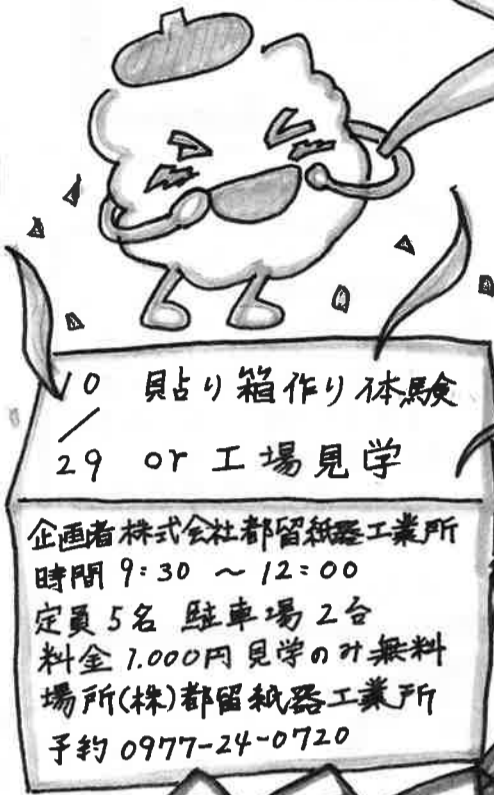 10/29 貼り箱作り体験
or 工場見学
企画者 株式会社都留紙器工業所
時間 9:30 ~ 12:00
定員 5名 駐車場 2台
料金 1.000円 見学のみ無料
場所 (株)都留紙器工業所
予約 0977-24-0720